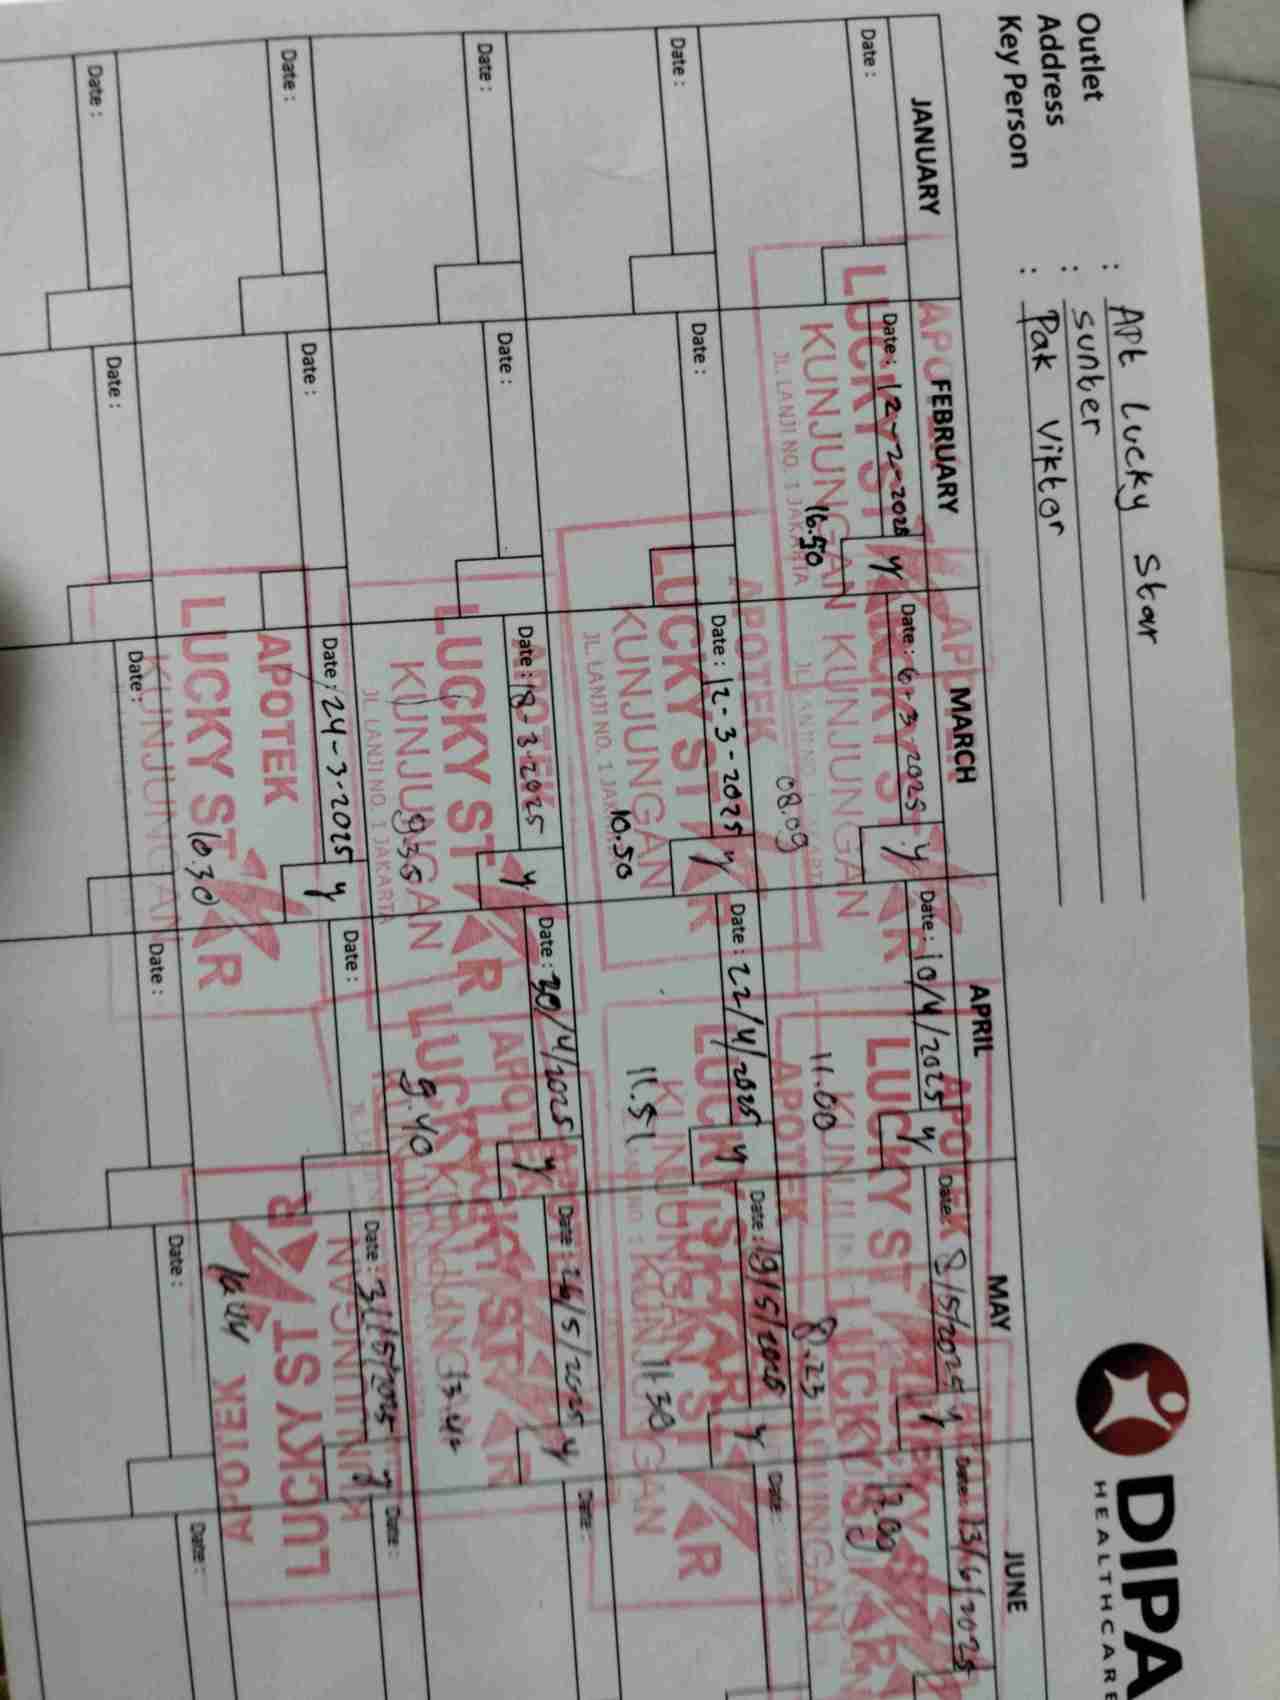 DIPA
HEALTHCARE
Outlet : Apt Lucky Star
Address : sunter
Key Person : Pak Viktor
JANUARY FEBRUARY MARCH APRIL MAY JUNE
Date : Date : 12-2-2025 y Date : 6-3-2025 y Date : 10/4/2025 y Date : 8/5/2025 y Date : 13/6/2025
APOTEK
LUCKY STAR
KUNJUNGAN
JL. LANJI NO. 1 JAKARTA
16.50 08.09 11.00 8.23
Date : Date : Date : 12-3-2025 y Date : 22/4/2025 y Date : 19/5/2025 y Date :
APOTEK
LUCKY STAR
KUNJUNGAN
JL. LANJI NO. 1 JAKARTA
10.50 11.51 11.30
Date : Date : Date : 18-3-2025 y Date : 30/4/2025 y Date : 26/5/2025 y Date :
APOTEK
LUCKY STAR
KUNJUNGAN
JL. LANJI NO. 1 JAKARTA
9.35 9.40 13.42
Date : Date : Date : 24-3-2025 y Date : Date : 31/5/2025 y Date :
APOTEK
LUCKY STAR
KUNJUNGAN
10.30
Date : Date : Date : Date : Date : Date :